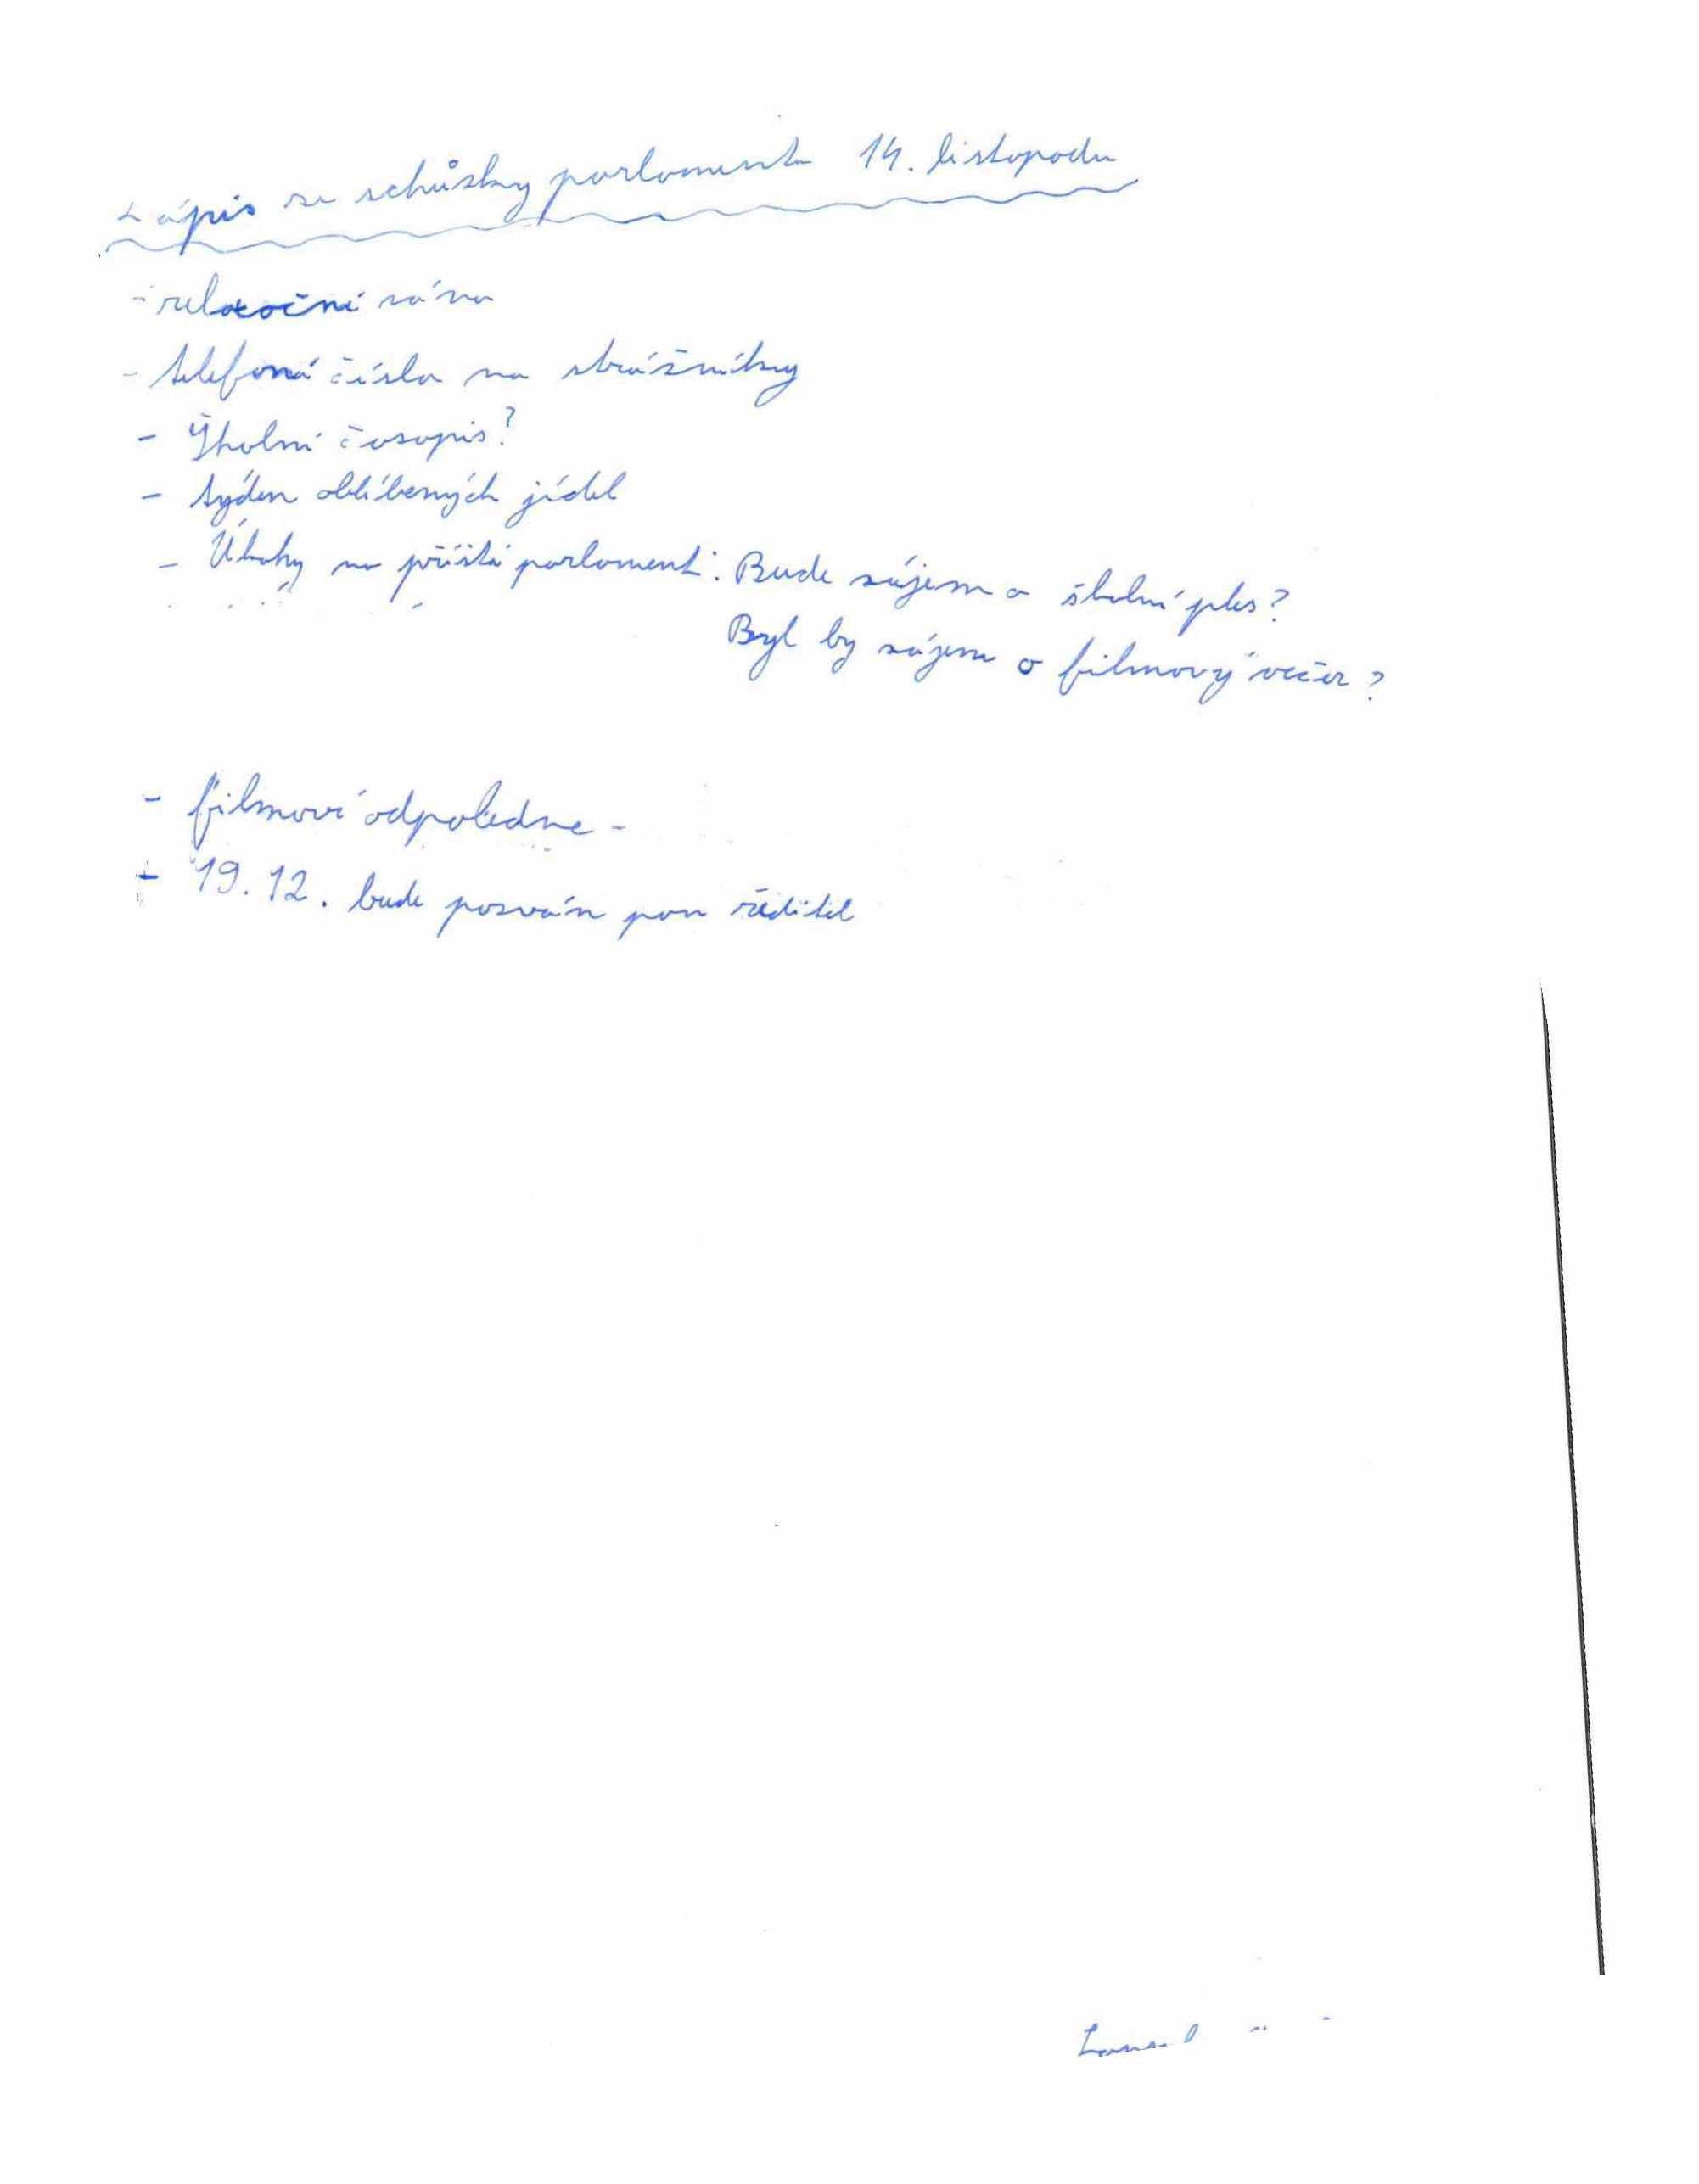 Zápis ze schůzky parlamentu 14. listopadu
- relaxační zóna
- telefoná čísla na strážníky
- Školní časopis?
- týden oblíbených jídel
- Úkoly na příští parlament: Bude zájem o školní ples?
Byl by zájem o filmový večer?
- filmové odpoledne -
- 19.12. bude pozván pan ředitel